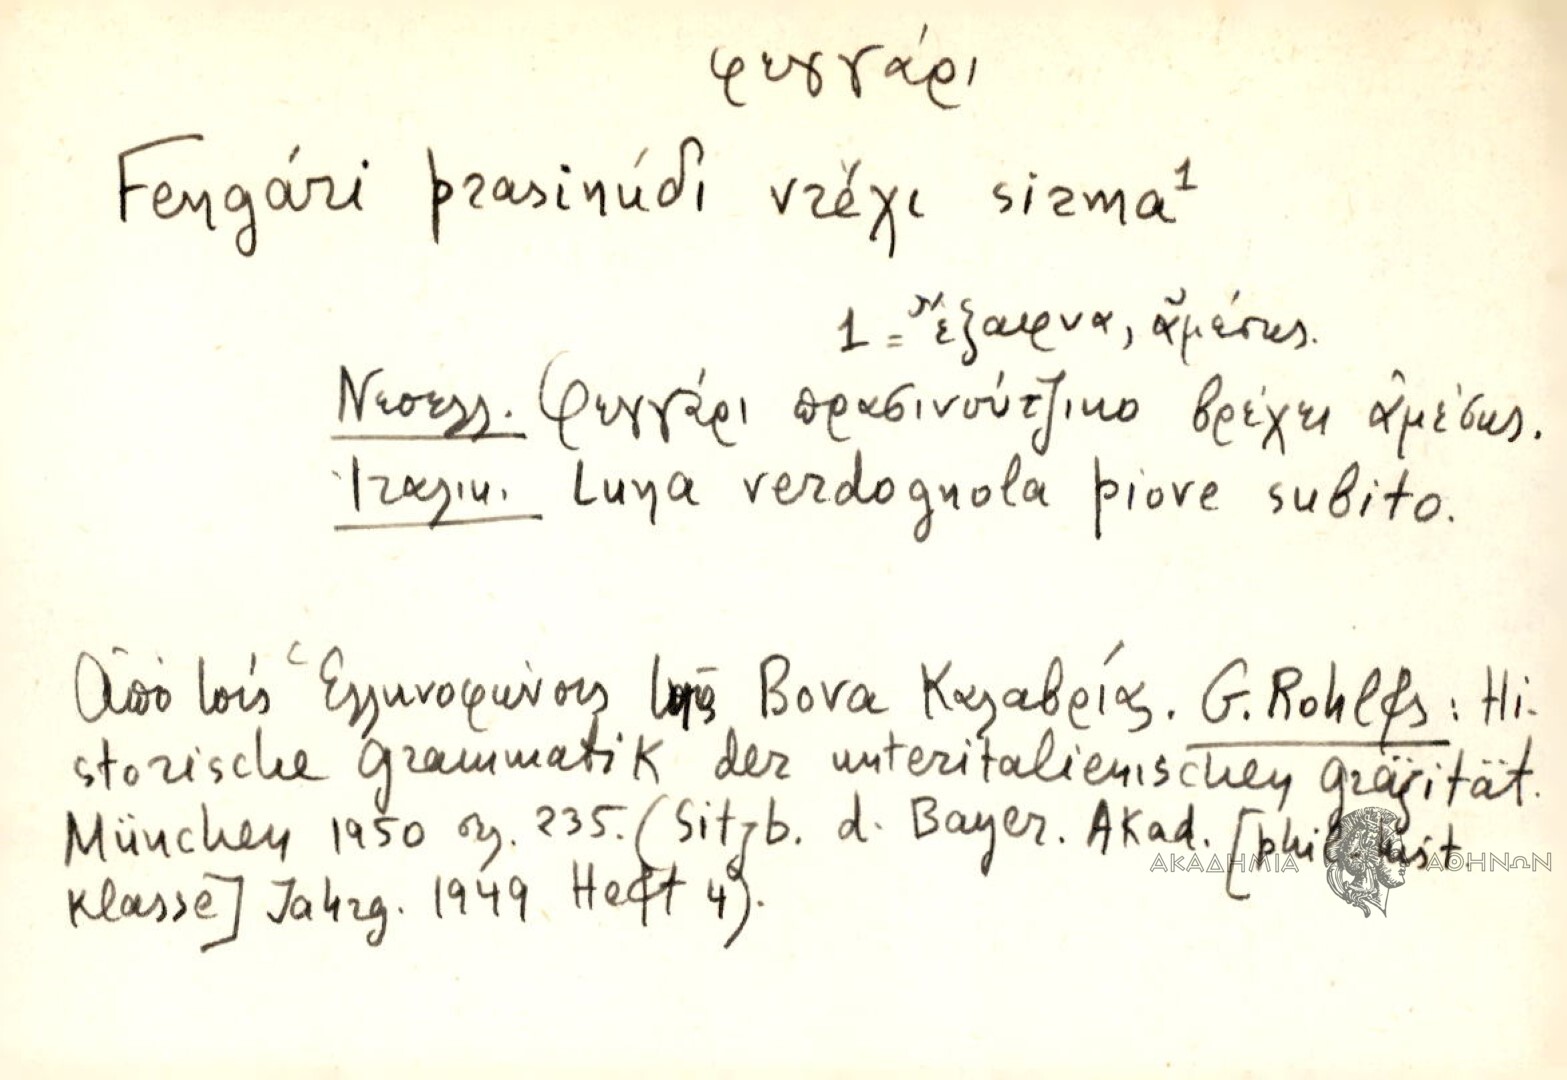 φεγγάρι
Fengári prasinúdi vréχι sirma¹
1 = ἔξαφνα, ἀμέσως.
Νεοελλ. Φεγγάρι πρασινούτζικο βρέχει ἀμέσως.
Ἰταλικ. Luna verdognola piove subito.
Ἀπὸ τοὺς Ἑλληνοφώνους τῆς Bova Καλαβρίας. G. Rohlfs: Hi-
storische Grammatik der unteritalienischen Gräzität.
München 1950 σλ. 235. (Sitzb. d. Bayer. Akad. [phil. hist
ΑΚΑΔΗΜΙΑ ΑΘΗΝΩΝ
Klasse] Jahrg. 1949 Heft 4).